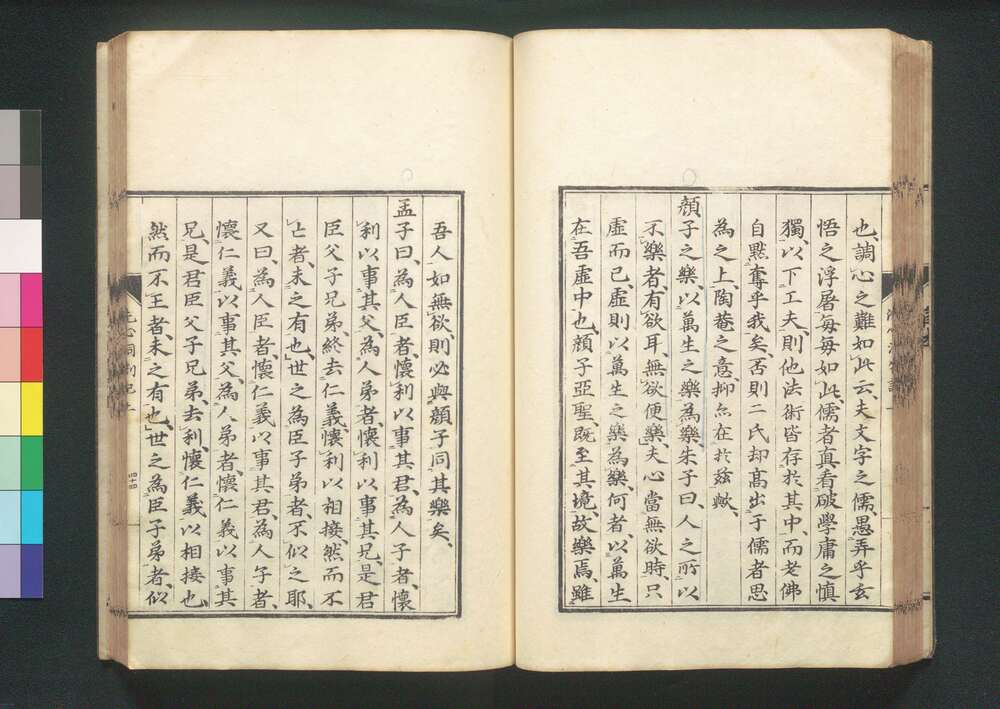 也、調心之難如此云、夫文字之儒、愚弄乎玄
悟之浮屠每每如此、儒者真看破學庸之慎
獨、以下工夫、則他法術皆存於其中、而老佛
自點奪乎我矣、否則二氏却高出于儒者思
為之上、陶菴之意抑亦在於茲歟、
顏子之樂、以萬生之樂為樂、朱子曰、人之所以
不樂者、有欲耳、無欲便樂、夫心當無欲時、只
虛而已、虛則以萬生之樂為樂、何者、以萬生
在吾虛中也、顏子亞聖、既至其境、故樂焉、雖
吾人如無欲、則必與顏子同其樂矣、
孟子曰、為人臣者、懷利以事其君、為人子者、懷
利以事其父、為人弟者、懷利以事其兄、是君
臣父子兄弟、終去仁義、懷利以相接、然而不
亡者、未之有也、世之為臣子弟者、不似之耶、
又曰、為人臣者、懷仁義以事其君、為人子者、
懷仁義以事其父、為人弟者、懷仁義以事其
兄、是君臣父子兄弟、去利、懷仁義以相接也、
然而不王者、未之有也、世之為臣子弟者、似
洗心洞劄記上
四十四